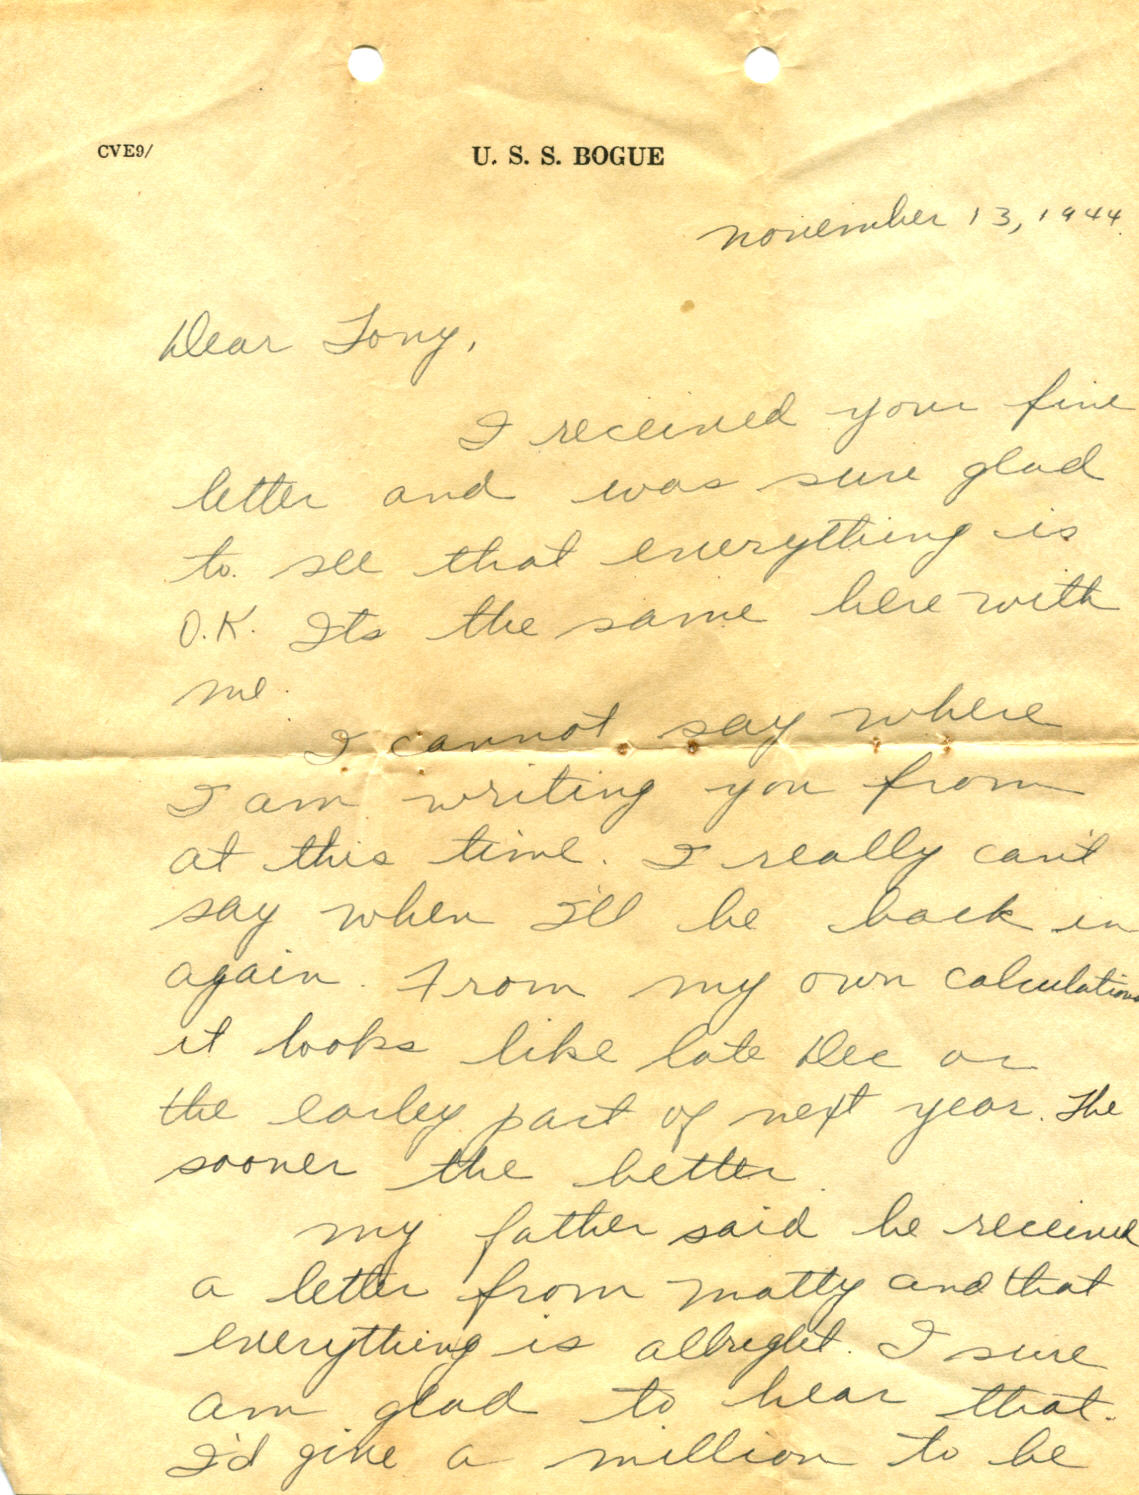 CVE9/
U. S. S. BOGUE
November 13, 1944.
Dear Tony,
I received your fine
letter and was sure glad
to see that everything is
O.K. Its the same here with
me.
I cannot say where
I am writing you from
at this time. I really can't
say when I'll be back in
again. From my own calculations
it looks like late Dec or
the earley part of next year. The
sooner the better.
My father said he received
a letter from Matty and that
everything is allright. I sure
am glad to hear that.
I'd give a million to be